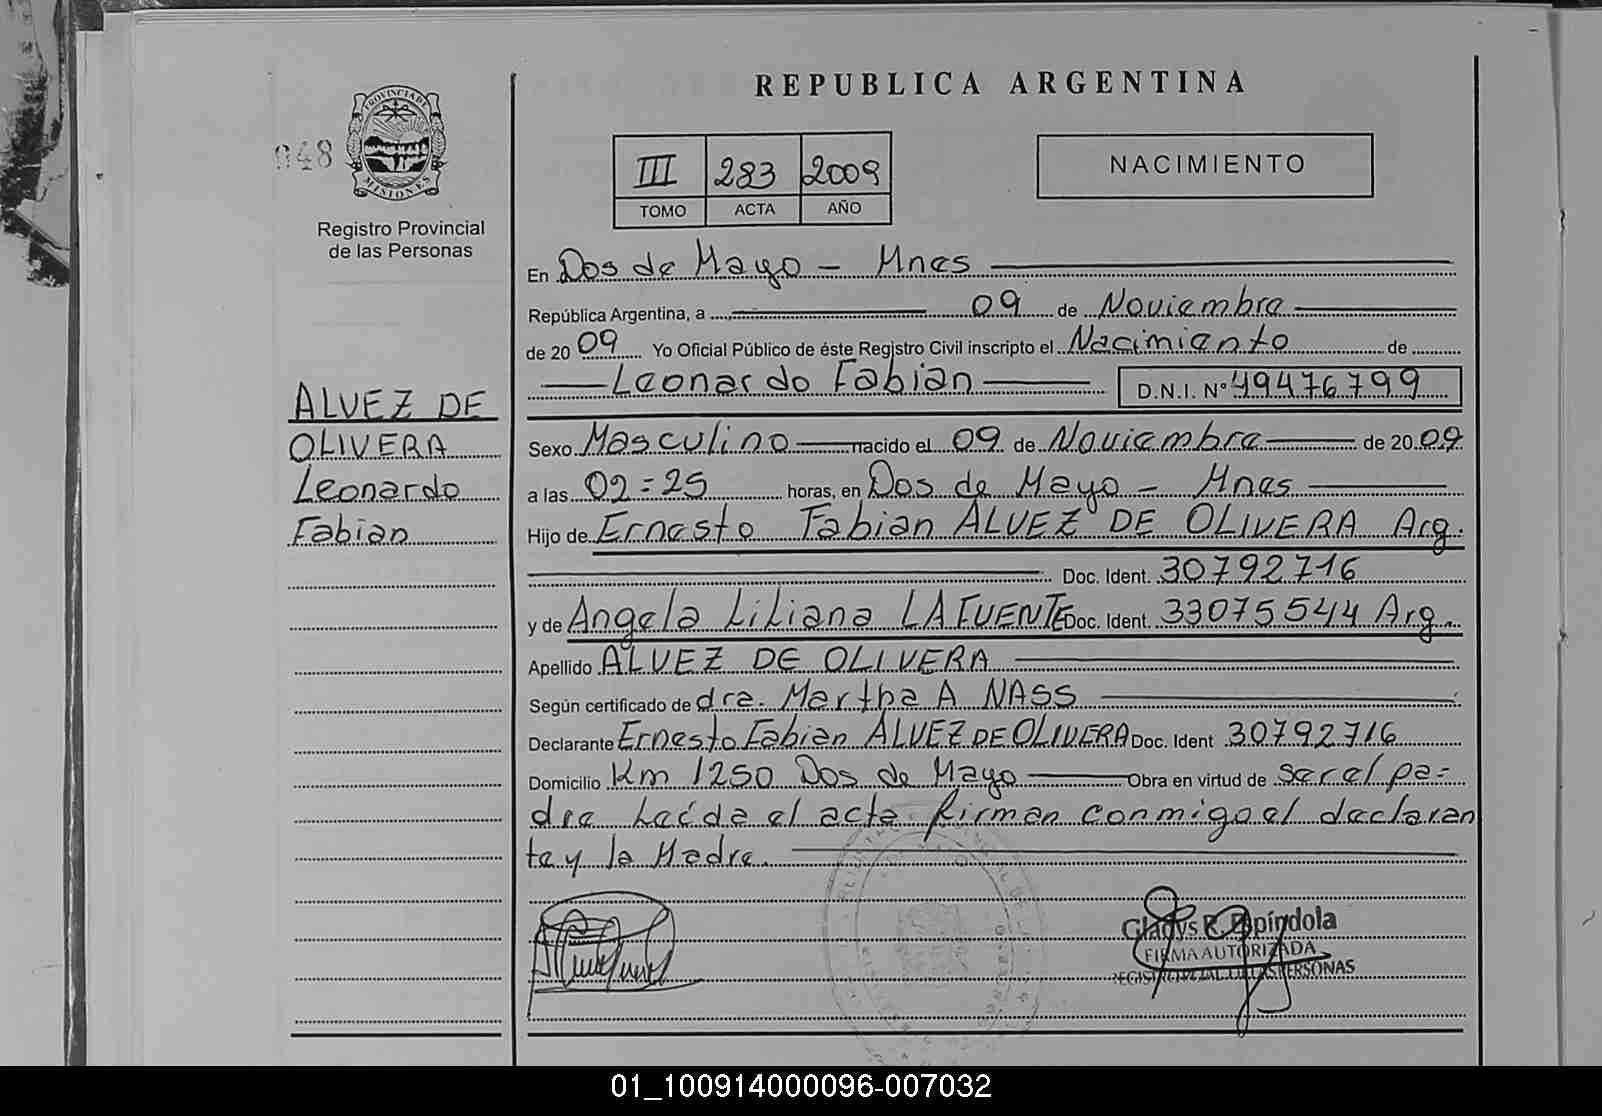 REPUBLICA ARGENTINA
048
PROVINCIA DE
MISIONES
Registro Provincial
de las Personas
III 283 2009
TOMO ACTA AÑO
NACIMIENTO
ALVEZ DE
OLIVERA
Leonardo
Fabian
En Dos de Mayo - Mnes
República Argentina, a 09 de Noviembre
de 20 09 Yo Oficial Público de éste Registro Civil inscripto el Nacimiento de
Leonardo Fabian D.N.I. N° 49476799
Sexo Masculino nacido el 09 de Noviembre de 20 09
a las 02=25 horas, en Dos de Mayo - Mnes
Hijo de Ernesto Fabian ALVEZ DE OLIVERA Arg.
Doc. Ident. 30792716
y de Angela Liliana LAFUENTE Doc. Ident. 33075544 Arg.
Apellido ALVEZ DE OLIVERA
Según certificado de dra. Martha A NASS
Declarante Ernesto Fabian ALVEZ DE OLIVERA Doc. Ident 30792716
Domicilio Km 1250 Dos de Mayo Obra en virtud de ser el pa=
dre Leída el acta firman conmigo el declaran
te y la Madre.
Gladys R. Espíndola
FIRMA AUTORIZADA
01_100914000096-007032